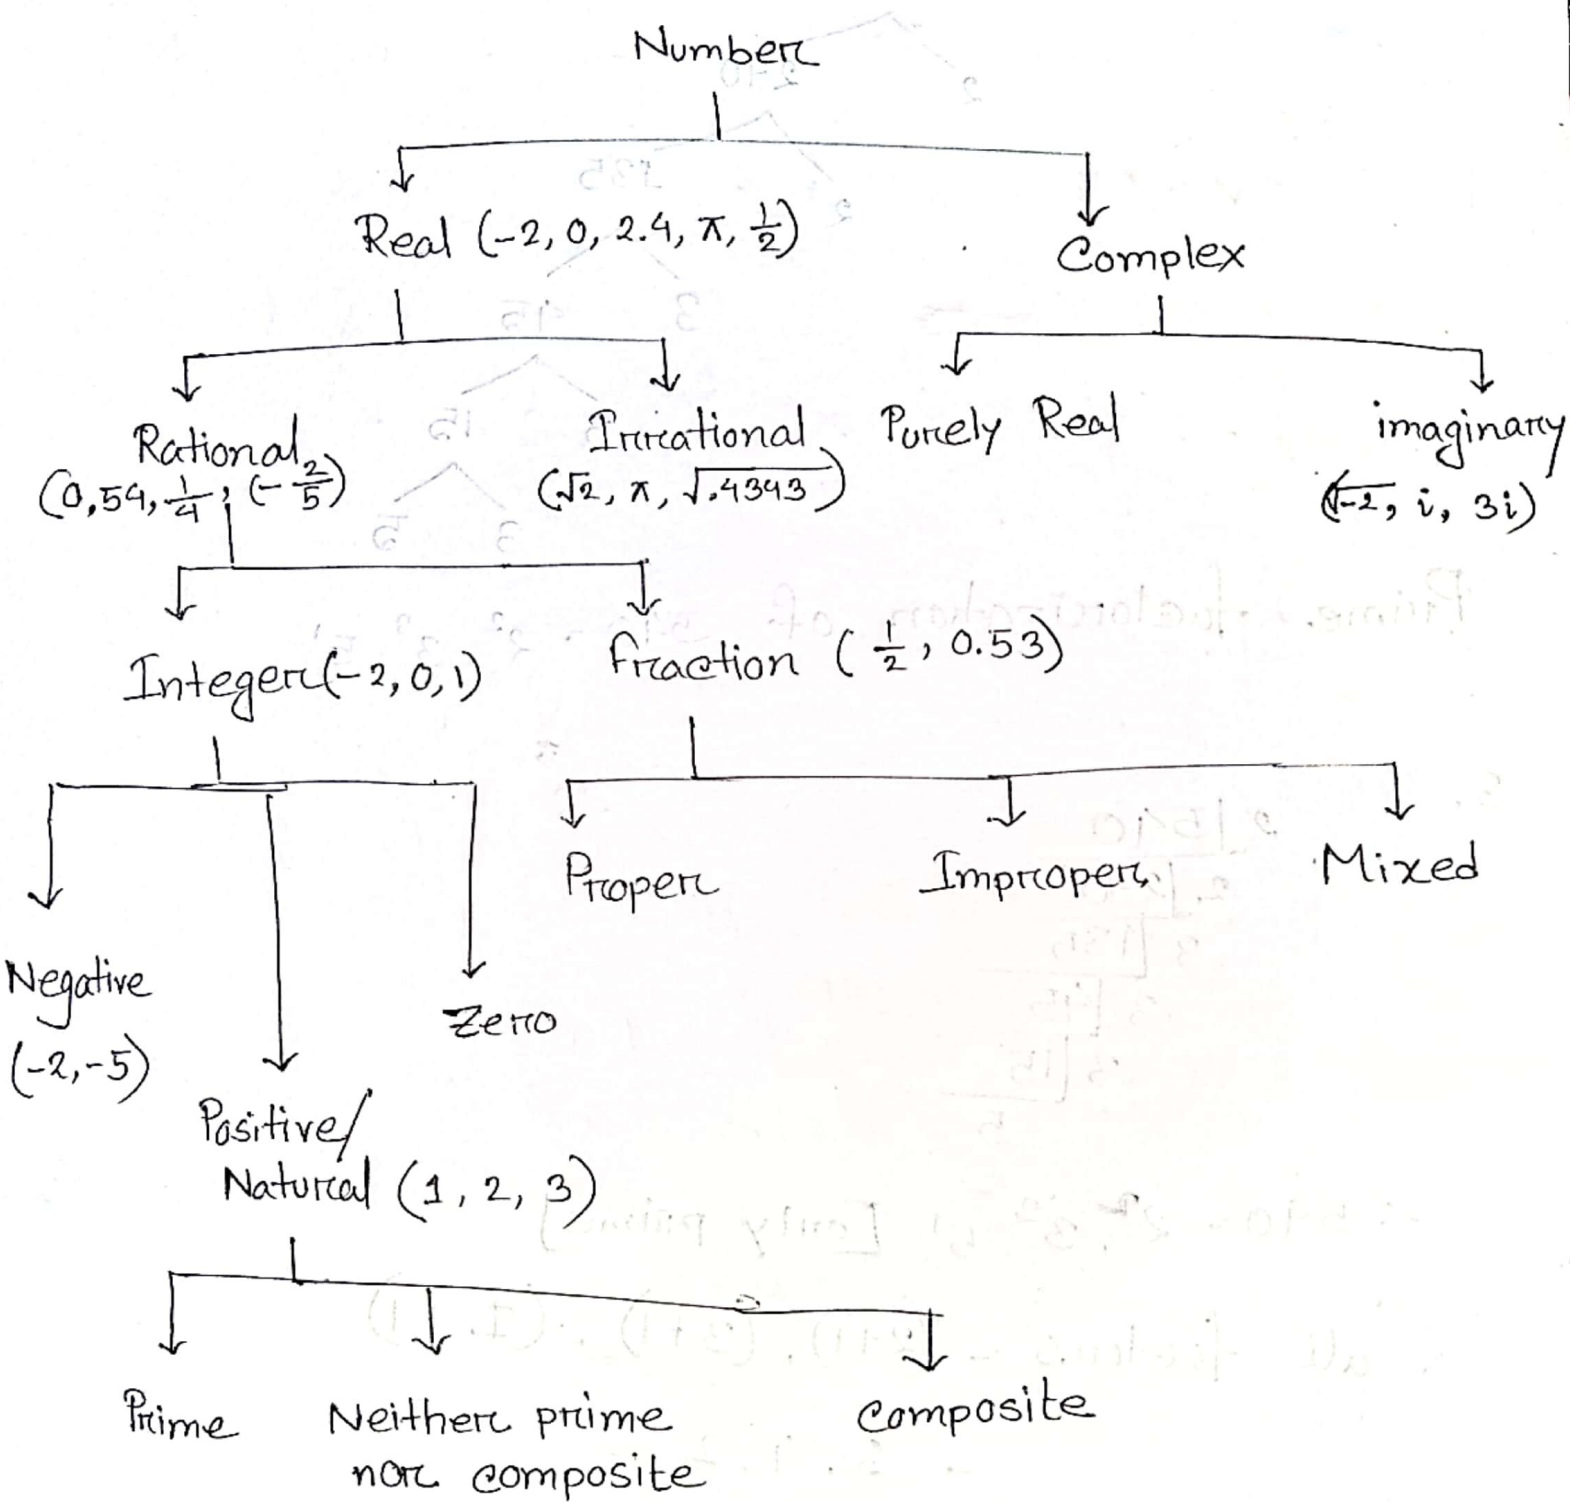 Number
Real (-2, 0, 2.4, π, 1/2)
Complex
Rational
(0, 54, 1/4, (-2/5)
Irrational
(√2, π, √.4343)
Purely Real
imaginary
(√-2, i, 3i)
Integer (-2, 0, 1)
fraction (1/2, 0.53)
Proper
Improper
Mixed
Negative
(-2, -5)
Zero
Positive/
Natural (1, 2, 3)
Prime
Neither prime
nor composite
composite